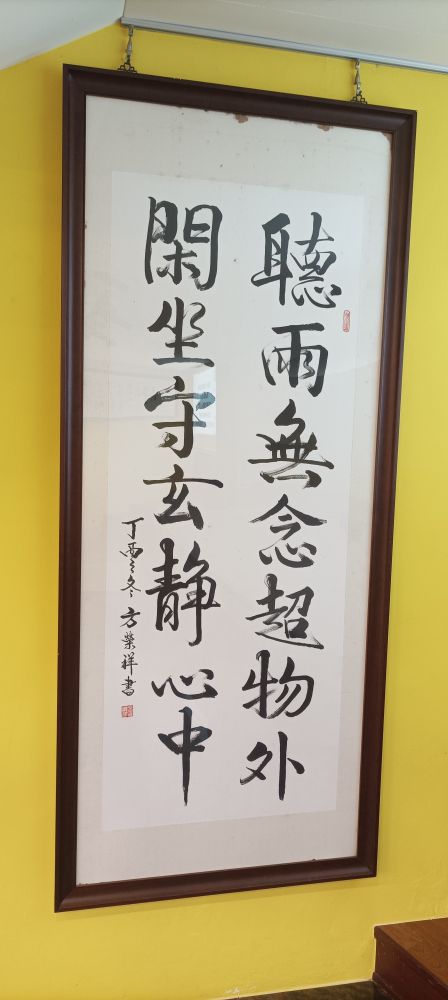 聽雨無念超物外
閑坐守玄靜心中
丁酉之冬方榮祥書